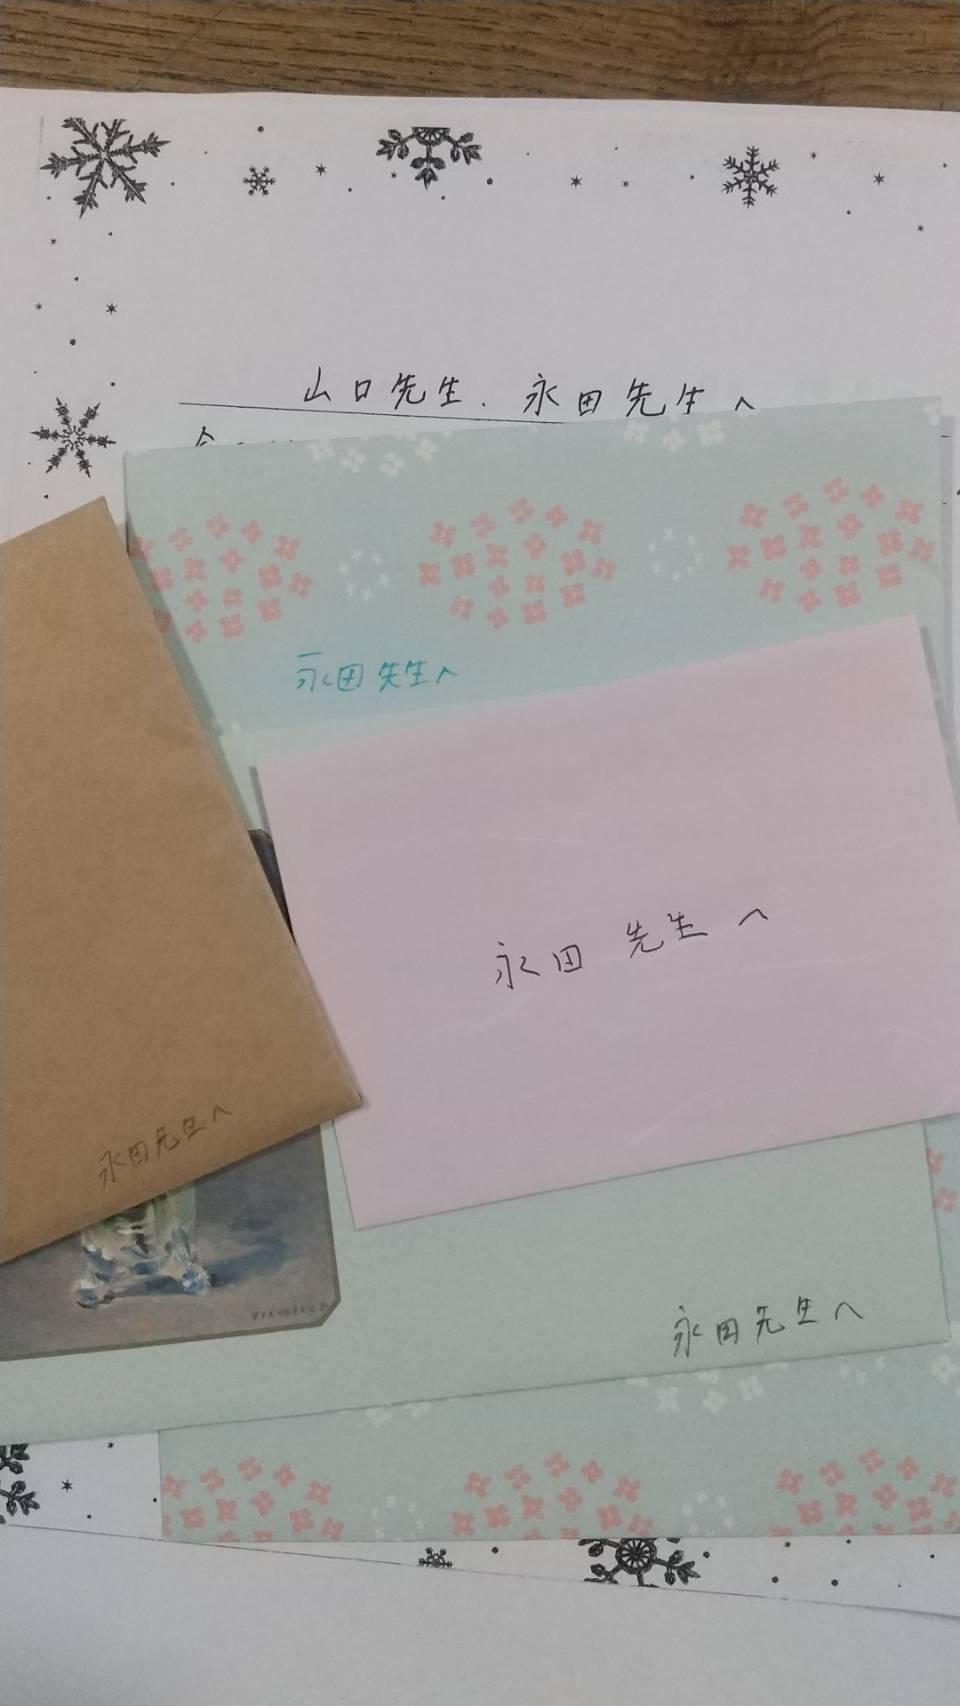 山口先生、永田先生へ
永田先生へ
永田 先生 へ
永田先生へ
永田先生へ